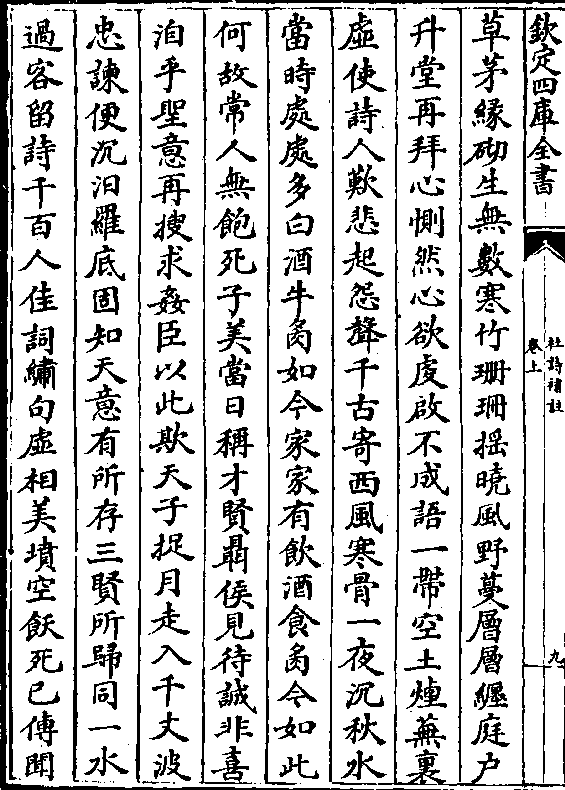 欽定四庫全書
杜詩補註
卷上
九
草茅緣砌生無數寒竹珊珊揺曉風野蔓層層纒庭户
升堂再拜心惻然心欲虔啟不成語一帶空土煙蕪裏
虛使詩人歎悲起怨聲千古寄西風寒骨一夜沉秋水
當時處處多白酒牛肉如今家家有飲酒食肉今如此
何故常人無飽死子美當日稱才賢聶侯見待誠非喜
洎乎聖意再搜求姦臣以此欺天子捉月走入千丈波
忠諫便沉汨羅底固知天意有所存三賢所歸同一水
過客留詩千百人佳詞繡句虛相美墳空飫死已傳聞